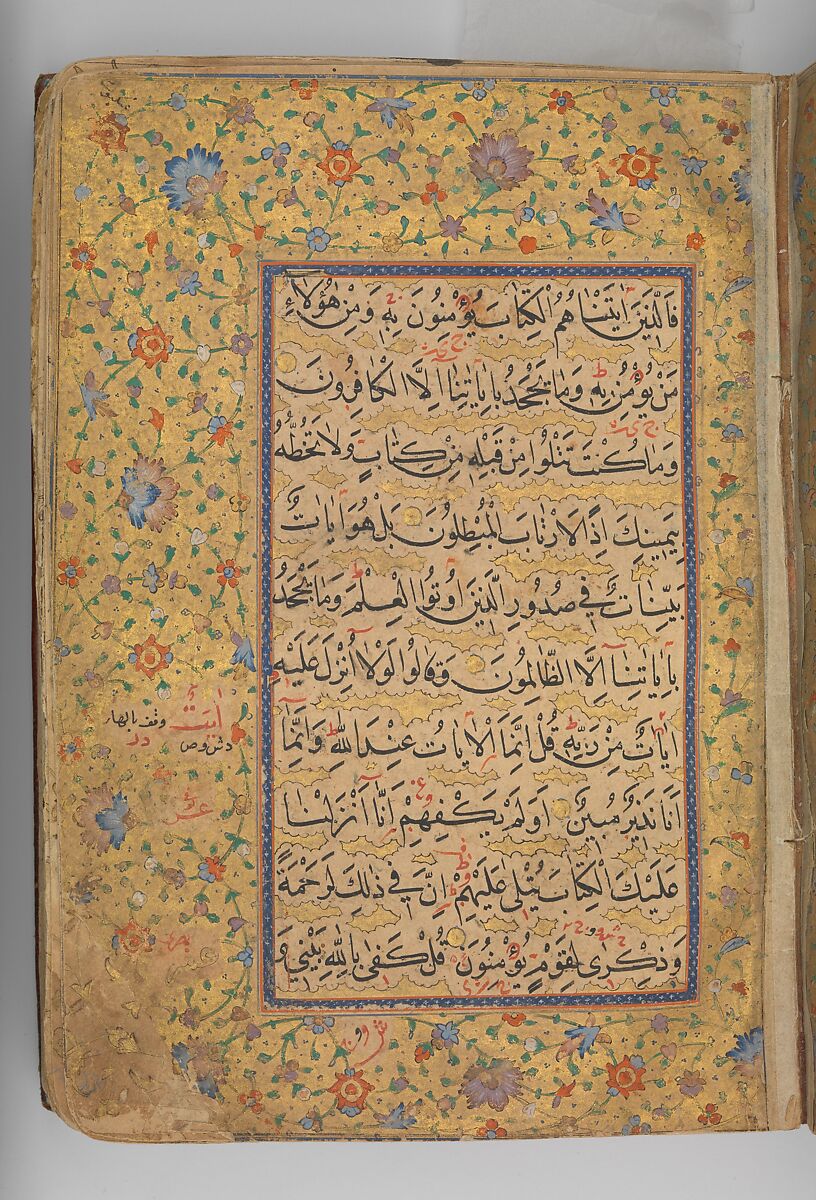 فَالَّذِينَ اٰتَيْنَاهُمُ الْكِتَابَ يُؤْمِنُونَ بِهٖ وَمِنْ هٰؤُلَاءِ
مَنْ يُؤْمِنُ بِهٖ وَمَا يَجْحَدُ بِاٰيَاتِنَا اِلَّا الْكَافِرُونَ
وَمَا كُنْتَ تَتْلُوا مِنْ قَبْلِهٖ مِنْ كِتَابٍ وَلَا تَخُطُّهُ
بِيَمِينِكَ اِذًا لَارْتَابَ الْمُبْطِلُونَ بَلْ هُوَ اٰيَاتٌ
بَيِّنَاتٌ فِي صُدُورِ الَّذِينَ اُوتُوا الْعِلْمَ وَمَا يَجْحَدُ
بِاٰيَاتِنَا اِلَّا الظَّالِمُونَ وَقَالُوا لَوْلَا اُنْزِلَ عَلَيْهِ
اٰيَاتٌ مِنْ رَبِّهٖ قُلْ اِنَّمَا الْاٰيَاتُ عِنْدَ اللّٰهِ وَاِنَّمَا
اَنَا نَذِيرٌ مُبِينٌ اَوَلَمْ يَكْفِهِمْ اَنَّا اَنْزَلْنَا
عَلَيْكَ الْكِتَابَ يُتْلٰى عَلَيْهِمْ اِنَّ فِي ذٰلِكَ لَرَحْمَةً
وَذِكْرٰى لِقَوْمٍ يُؤْمِنُونَ قُلْ كَفٰى بِاللّٰهِ بَيْنِي وَ